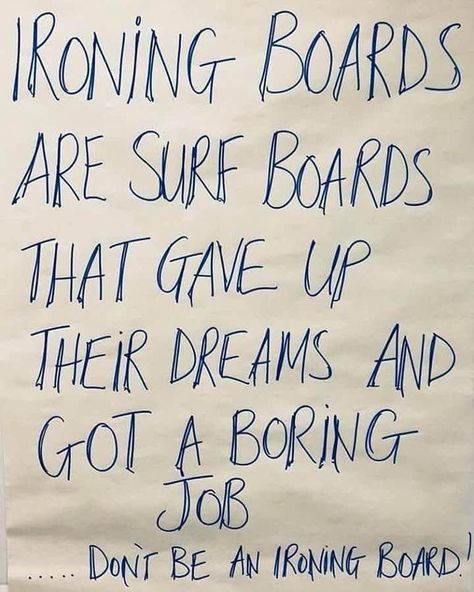 IRONING BOARDS
ARE SURF BOARDS
THAT GAVE UP
THEIR DREAMS AND
GOT A BORING
JOB
..... DON'T BE AN IRONING BOARD!